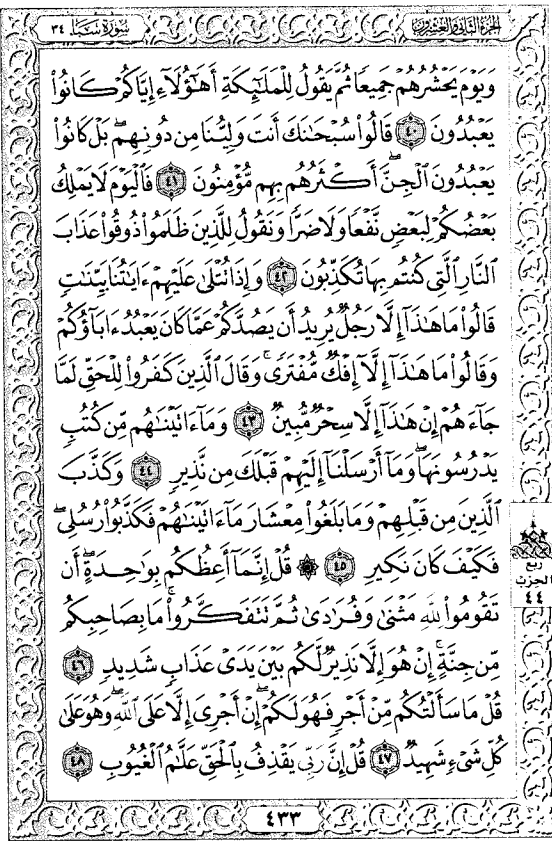 الجزء الثاني والعشرون
سورة سبأ ٣٤
وَيَوْمَ يَحْشُرُهُمْ جَمِيعًا ثُمَّ يَقُولُ لِلْمَلَٰٓئِكَةِ أَهَٰٓؤُلَآءِ إِيَّاكُمْ كَانُوا۟
يَعْبُدُونَ ٤٠ قَالُوا۟ سُبْحَٰنَكَ أَنتَ وَلِيُّنَا مِن دُونِهِم ۖ بَلْ كَانُوا۟
يَعْبُدُونَ ٱلْجِنَّ ۖ أَكْثَرُهُم بِهِم مُّؤْمِنُونَ ٤١ فَٱلْيَوْمَ لَا يَمْلِكُ
بَعْضُكُمْ لِبَعْضٍ نَّفْعًا وَلَا ضَرًّا وَنَقُولُ لِلَّذِينَ ظَلَمُوا۟ ذُوقُوا۟ عَذَابَ
ٱلنَّارِ ٱلَّتِى كُنتُم بِهَا تُكَذِّبُونَ ٤٢ وَإِذَا تُتْلَىٰ عَلَيْهِمْ ءَايَٰتُنَا بَيِّنَٰتٍ
قَالُوا۟ مَا هَٰذَآ إِلَّا رَجُلٌ يُرِيدُ أَن يَصُدَّكُمْ عَمَّا كَانَ يَعْبُدُ ءَابَآؤُكُمْ
وَقَالُوا۟ مَا هَٰذَآ إِلَّآ إِفْكٌ مُّفْتَرًى ۚ وَقَالَ ٱلَّذِينَ كَفَرُوا۟ لِلْحَقِّ لَمَّا
جَآءَهُمْ إِنْ هَٰذَآ إِلَّا سِحْرٌ مُّبِينٌ ٤٣ وَمَآ ءَاتَيْنَٰهُم مِّن كُتُبٍ
يَدْرُسُونَهَا ۖ وَمَآ أَرْسَلْنَآ إِلَيْهِمْ قَبْلَكَ مِن نَّذِيرٍ ٤٤ وَكَذَّبَ
ٱلَّذِينَ مِن قَبْلِهِمْ وَمَا بَلَغُوا۟ مِعْشَارَ مَآ ءَاتَيْنَٰهُمْ فَكَذَّبُوا۟ رُسُلِى ۖ
فَكَيْفَ كَانَ نَكِيرِ ٤٥ ۞ قُلْ إِنَّمَآ أَعِظُكُم بِوَٰحِدَةٍ ۖ أَن
تَقُومُوا۟ لِلَّهِ مَثْنَىٰ وَفُرَٰدَىٰ ثُمَّ تَتَفَكَّرُوا۟ ۚ مَا بِصَاحِبِكُم
مِّن جِنَّةٍ ۚ إِنْ هُوَ إِلَّا نَذِيرٌ لَّكُم بَيْنَ يَدَىْ عَذَابٍ شَدِيدٍ ٤٦
قُلْ مَا سَأَلْتُكُم مِّنْ أَجْرٍ فَهُوَ لَكُمْ ۖ إِنْ أَجْرِىَ إِلَّا عَلَى ٱللَّهِ ۖ وَهُوَ عَلَىٰ
كُلِّ شَىْءٍ شَهِيدٌ ٤٧ قُلْ إِنَّ رَبِّى يَقْذِفُ بِٱلْحَقِّ عَلَّٰمُ ٱلْغُيُوبِ ٤٨
ربع
الحزب
٤٤
٤٣٣